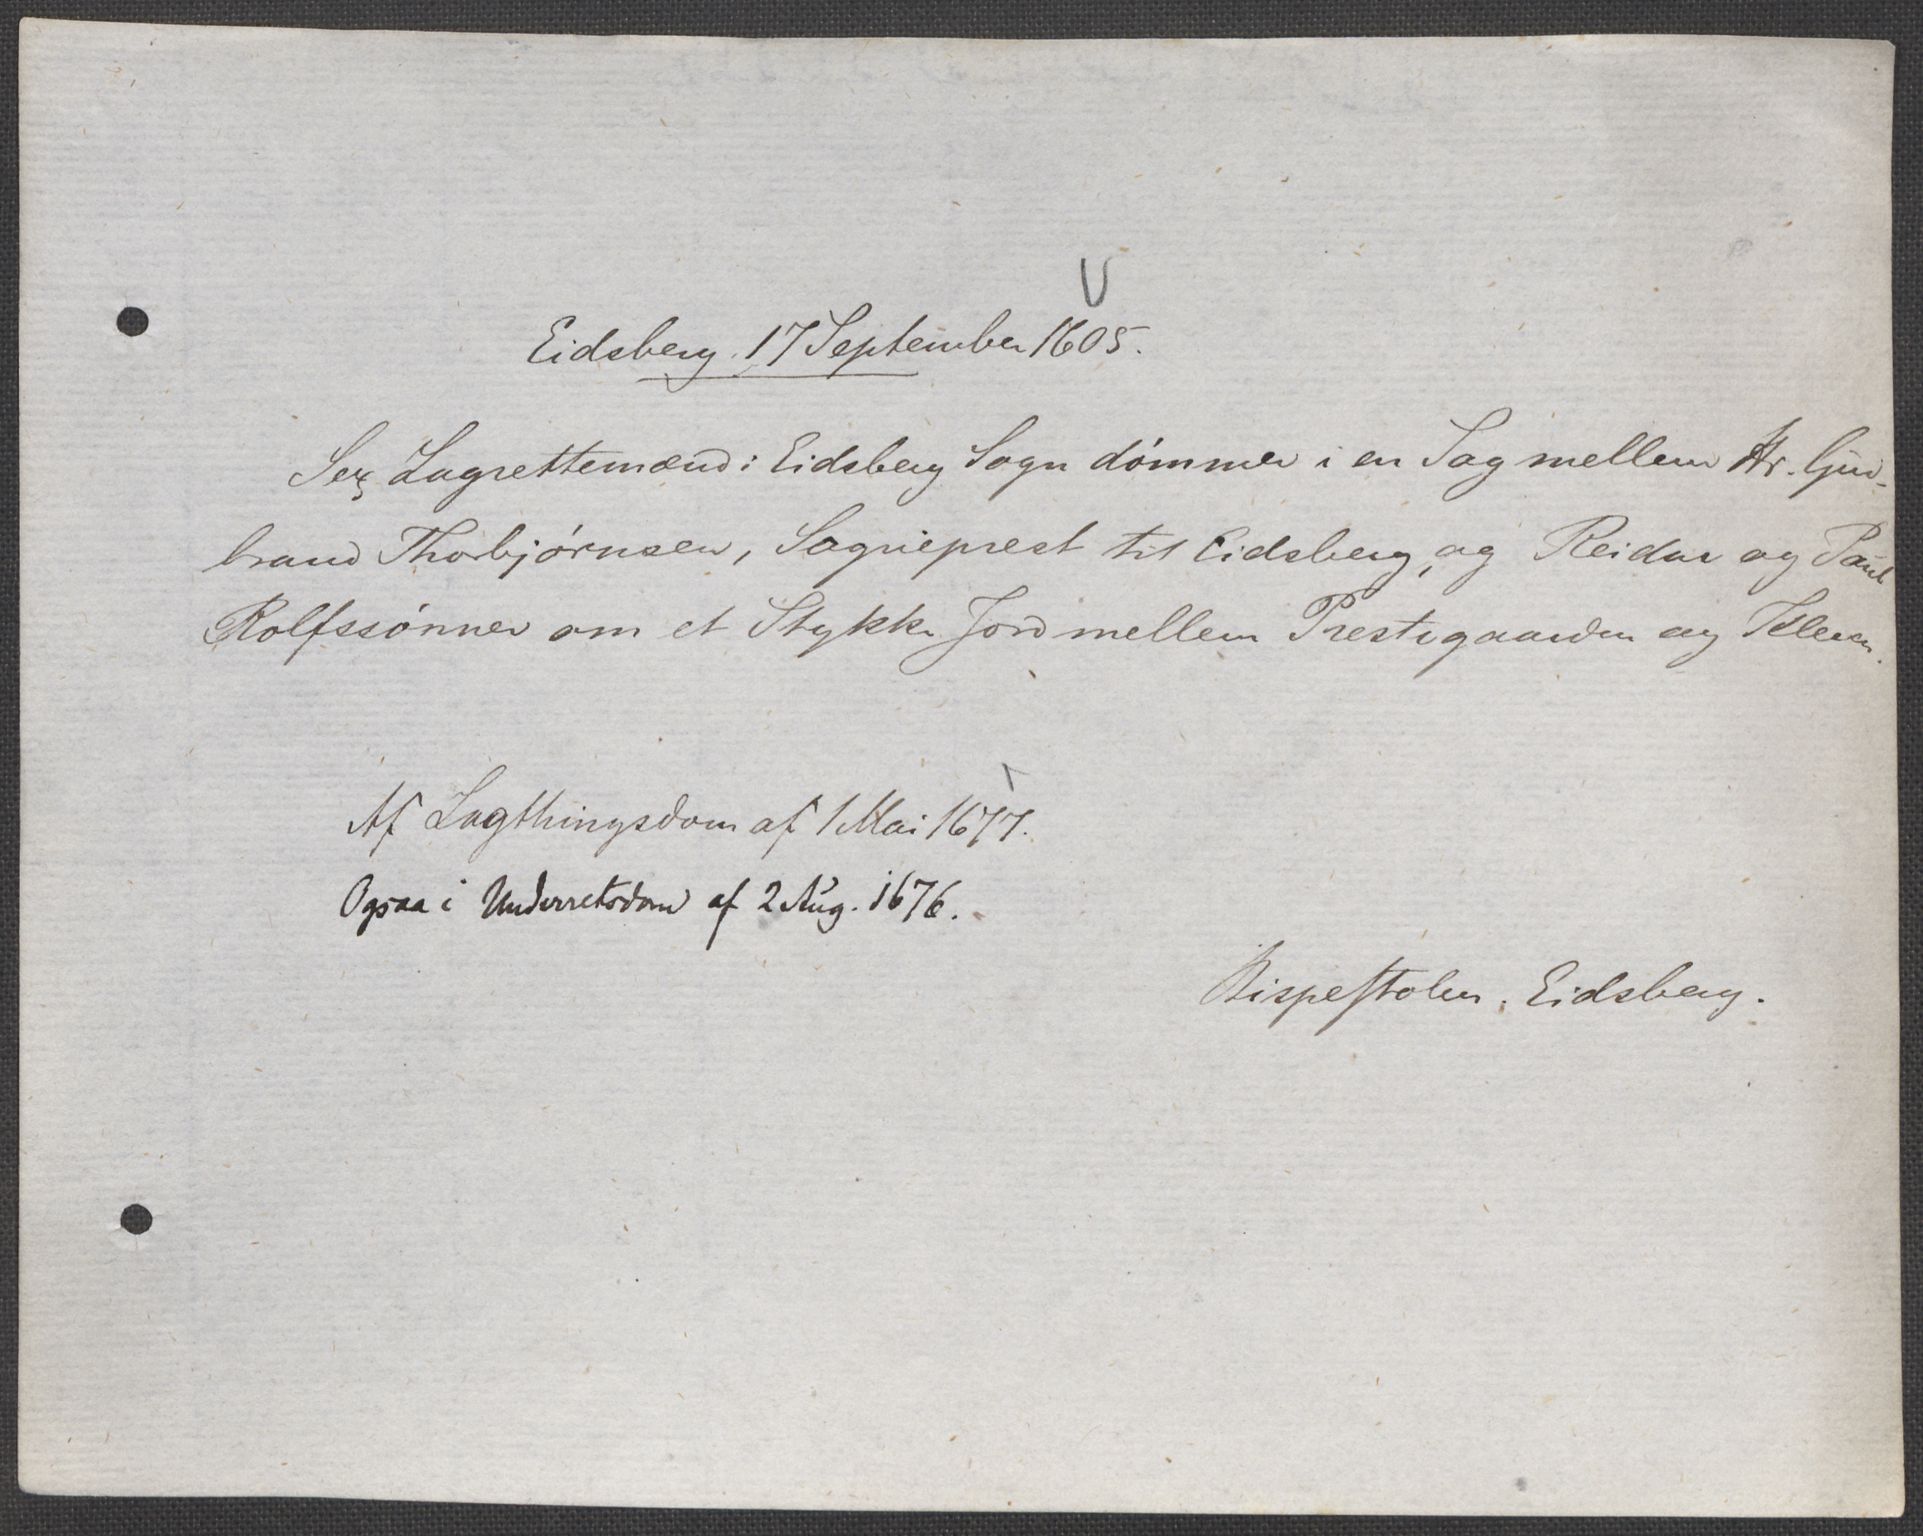 Eidsberg 17 September 1605.
Sex Lagrettemænd i Eidsberg Sogn dómmer i en Sag mellem Hr. Gud-
brand Thorbjórnsen, Sogneprest til Eidsberg, og Reidar og Paul
Rolfssónner om et Stykke Jord mellem Prestegaarden og
Af Lagthingsdom af 1 Mai 1677.
Ogsaa i Underretsdom af 2 Aug. 1676.
Bispestolen. Eidsberg.